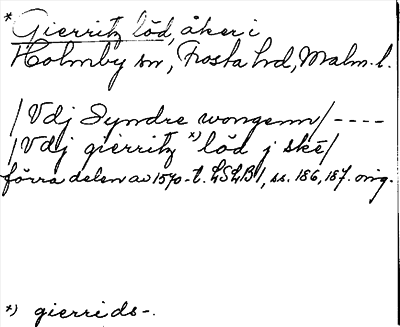 * Gierritz löd, åker i
Holmby sn, Frosta hd, Malm. l.
/Vdj Syndre wongenn/ ----
/Vdj gierritz *) löd j skē/
förra delen av 1570-t. LSLB 1, ss. 186, 187. orig.
*) gierrids-.